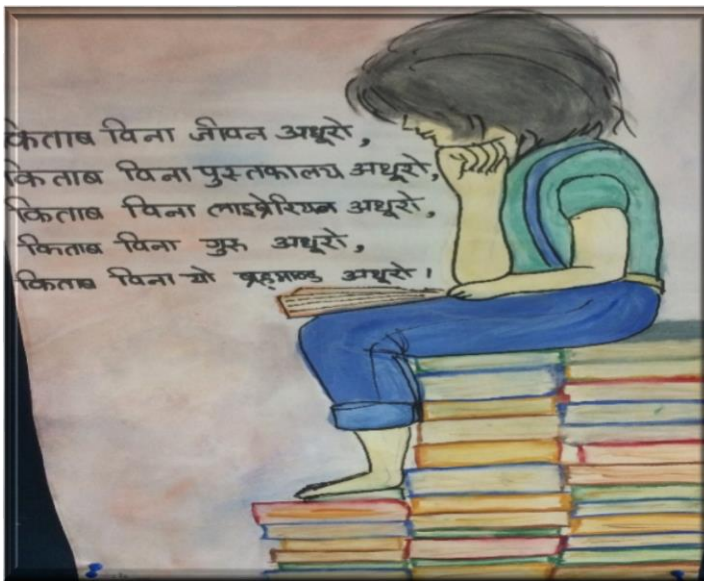 किताब विना जीवन अधूरो,
किताब विना पुस्तकालय अधूरो,
किताब विना लाइब्रेरियन अधूरो,
किताब विना गुरु अधूरो,
किताब विना यो ब्रह्माण्ड अधूरो।